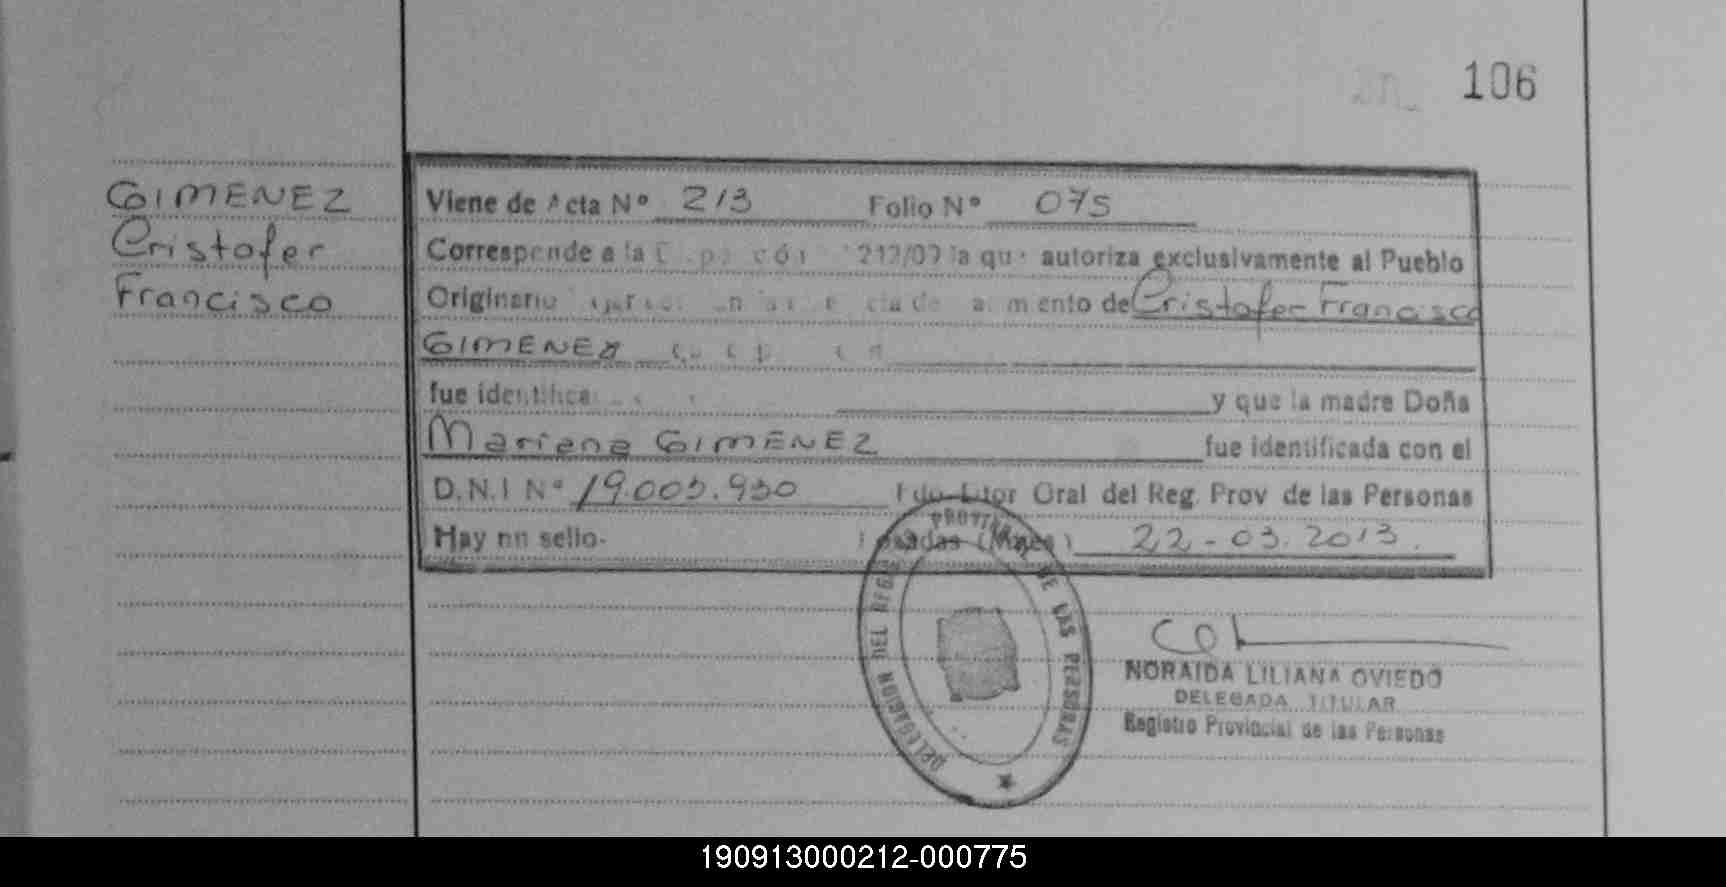 106
GIMENEZ
Cristofer
Francisco
Viene de Acta Nº 213 Folio Nº 075
Corresponde a la 1212/07 la que autoriza exclusivamente al Pueblo
Originario de Cristofer Francisco
GIMENEZ
fue y que la madre Doña
Mariana GIMENEZ fue identificada con el
D.N.I Nº 19.005.930 Oral del Reg. Prov de las Personas
Hay nn sello. 22-03.2013.
DELEGACION DEL REG. PROVINCIAL DE LAS PERSONAS
NORAIDA LILIANA OVIEDO
DELEGADA TITULAR
Registro Provincial de las Personas
190913000212-000775